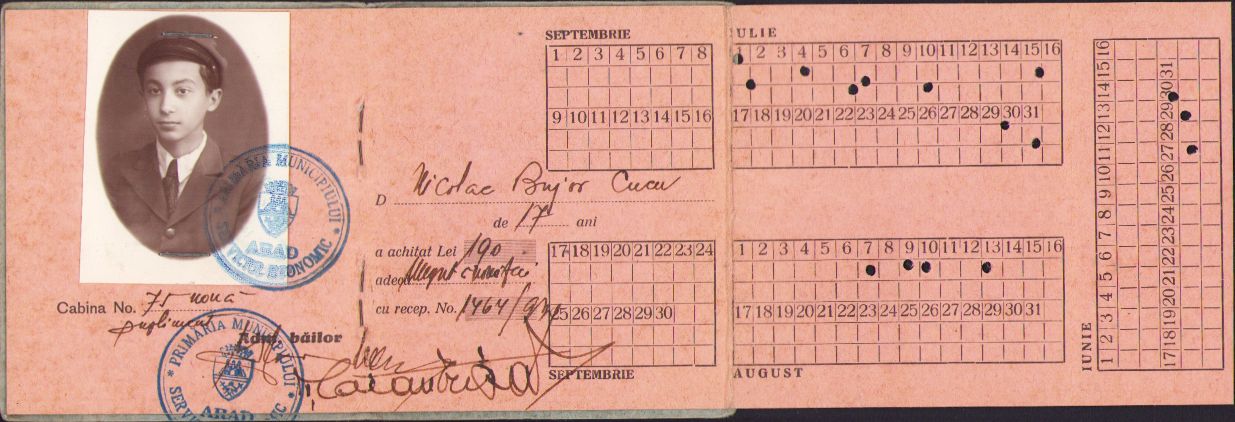 PRIMĂRIA MUNICIPIULUI
ARAD
SERVICIUL ECONOMIC
Cabina No. 75 nouă
supliment
Adm. băilor
PRIMĂRIA MUNICIPIULUI
ARAD
D Nicolae Bujor Cucu
de 17 ani
a achitat Lei 190
adecă
cu recep. No. 1464/
SEPTEMBRIE
1 2 3 4 5 6 7 8
9 10 11 12 13 14 15 16
17 18 19 20 21 22 23 24
25 26 27 28 29 30
SEPTEMBRIE
IULIE
1 2 3 4 5 6 7 8 9 10 11 12 13 14 15 16
17 18 19 20 21 22 23 24 25 26 27 28 29 30 31
1 2 3 4 5 6 7 8 9 10 11 12 13 14 15 16
17 18 19 20 21 22 23 24 25 26 27 28 29 30 31
AUGUST
IUNIE
1 2 3 4 5 6 7 8 9 10 11 12 13 14 15 16
17 18 19 20 21 22 23 24 25 26 27 28 29 30 31